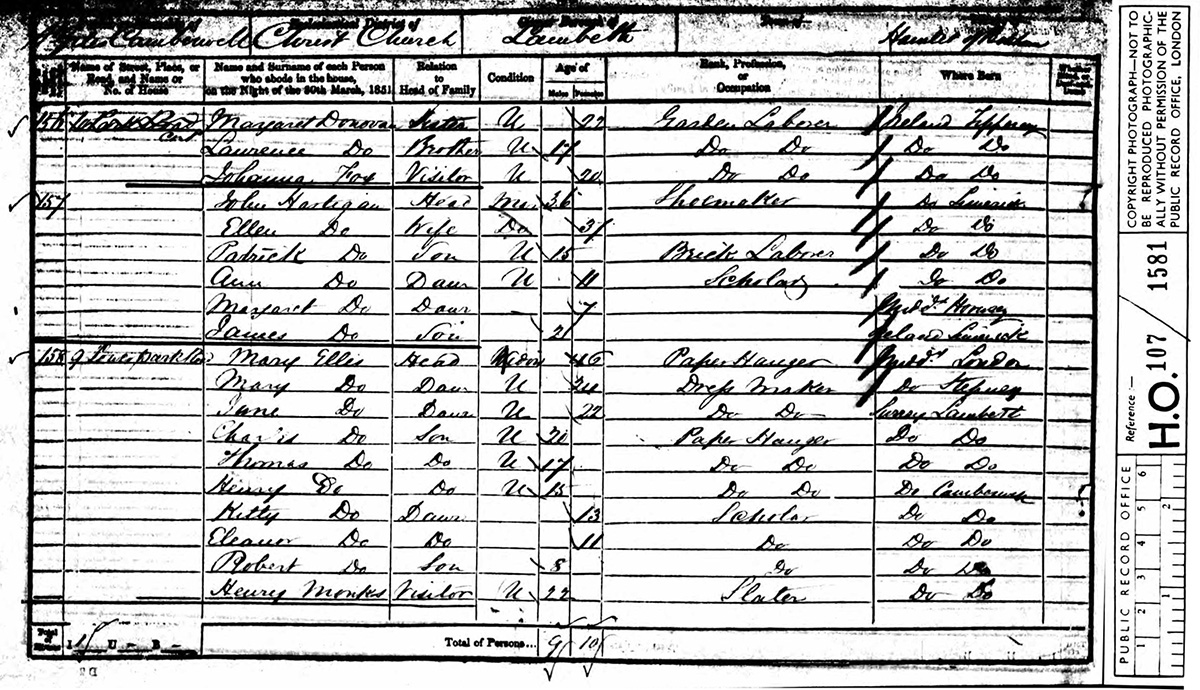 Giles Camberwell Christ Church Lambeth Hamlet of
Ecclesiastical District of
Name of Street, Place, or Road, and Name or No. of House
Name and Surname of each Person who abode in the house, on the Night of the 30th March, 1851
Relation to Head of Family
Condition
Age of
Males Females
Rank, Profession, or Occupation
Where Born
156 Margaret Donovan Sister U 22 Garden Laborer Ireland
Lawrence Do Brother U 17 Do Do Do Do
Johanna Fox Visitor U 20 Do Do Do Do
157 John Hartigan Head Mar 36 Shoemaker Do Limerick
Ellen Do Wife Do 37 Do Do
Patrick Do Son U 15 Brick Laborer Do Do
Ann Do Daur U 11 Scholar Do Do
Margaret Do Daur 7
James Do Son 2 Ireland Limerick
158 9 Mary Ellis Head 46 Paper Hanger London
Mary Do Daur U 24 Dress Maker Do Stepney
Jane Do Daur U 22 Do Do Surrey Lambeth
Charles Do Son U 20 Paper Hanger Do Do
Thomas Do Do U 17 Do Do Do Do
Henry Do Do U 15 Do Do Do Camberwell
Kitty Do Daur 13 Scholar Do Do
Eleanor Do Do 11 Do Do Do
Robert Do Son 8 Do Do Do
Henry Monks Visitor U 22 Slater Do Do
Total of Houses
U - B -
Total of Persons... 9 10
COPYRIGHT PHOTOGRAPH—NOT TO
BE REPRODUCED PHOTOGRAPHIC-
ALLY WITHOUT PERMISSION OF THE
PUBLIC RECORD OFFICE, LONDON
Reference:—
H.O. 107 / 1581
PUBLIC RECORD OFFICE
1 2 3 4 5 6
1 2